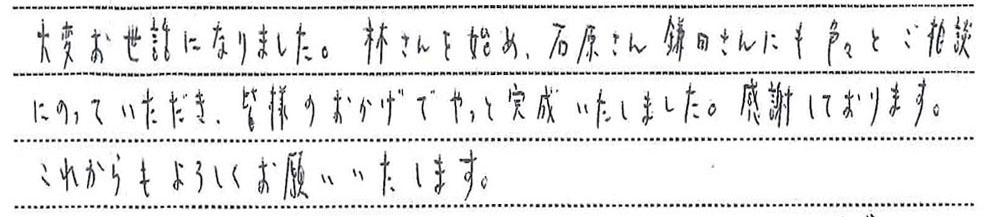 大変お世話になりました。林さんを始め、石原さん鎌田さんにも色々とご相談
にのっていただき、皆様のおかげでやっと完成いたしました。感謝しております。
これからもよろしくお願いいたします。